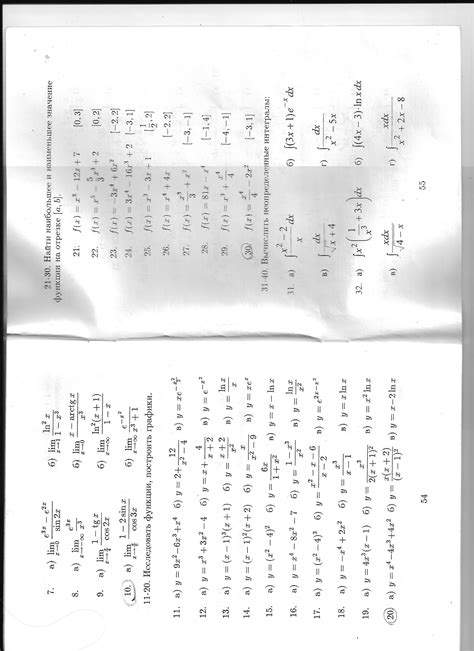 7. а) lim_{x→0} (e^{3x} − e^{2x})/(sin 2x) б) lim_{x→1} (ln² x)/(1 − x³)
8. а) lim_{x→∞} e^{3x}/x³ б) lim_{x→0} (x − arctg x)/x³
9. а) lim (1 − tg x)/(cos 2x) б) lim ln²(x + 1)/(1 − x)
10. а) lim (1 − 2 sin x)/(cos 3x) б) lim_{x→∞} e^{−x²}/(x³ + 1)
11-20. Исследовать функции, построить графики.
11. а) y = 9x² − 6x³ + x⁴ б) y = 2 + 12/(x² − 4) в) y = xe^{−x²}
12. а) y = x³ + 3x² − 4 б) y = x + 4/(x + 2) в) y = e^{−x²}
13. а) y = (x − 1)²(x + 1) б) y = (x + 2)/x² в) y = ln x/x
14. а) y = (x − 1)²(x + 2) б) y = x²/(x² − 9) в) y = xe^x
15. а) y = (x² − 4)² б) y = 6x/(1 + x²) в) y = x − ln x
16. а) y = x⁴ − 8x² − 7 б) y = (1 − x³)/x² в) y = ln x/x²
17. а) y = (x² − 4)³ б) y = (x² − x − 6)/(x − 2) в) y = e^{2x−x²}
18. а) y = −x⁴ + 2x² б) y = x²/(x − 1) в) y = x ln x
19. а) y = 4x³(x − 1) б) y = x³/(2(x + 1)²) в) y = x² ln x
20. а) y = x⁴ − 4x³ + 4x² б) y = x(x + 2)/(x − 1)² в) y = x − 2 ln x
54
21-30. Найти наибольшее и наименьшее значение
функции на отрезке [a, b].
21. f(x) = x³ − 12x + 7 [0, 3]
22. f(x) = x⁵ − (5/3)x³ + 2 [0, 2]
23. f(x) = −3x⁴ + 6x² [−2, 2]
24. f(x) = 3x⁴ − 16x³ + 2 [−3, 1]
25. f(x) = x³ − 3x + 1 [1/2, 2]
26. f(x) = x⁴ + 4x [−2, 2]
27. f(x) = x³/3 + x² [−3, −1]
28. f(x) = 81x − x⁴ [−1, 4]
29. f(x) = x³ + x⁴/4 [−4, −1]
30. f(x) = x⁴/4 − 2x² [−3, 1]
31-40. Вычислить неопределенные интегралы:
31. а) ∫ (x² − 2)/x dx б) ∫(3x + 1)e^{−x}dx
в) ∫ dx/√(x + 4) г) ∫ dx/(x² − 5x)
32. а) ∫ x²(1/x³ + 3x)dx б) ∫(4x − 3) · ln x dx
в) ∫ xdx/√(4 − x) г) ∫ xdx/(x² + 2x − 8)
55